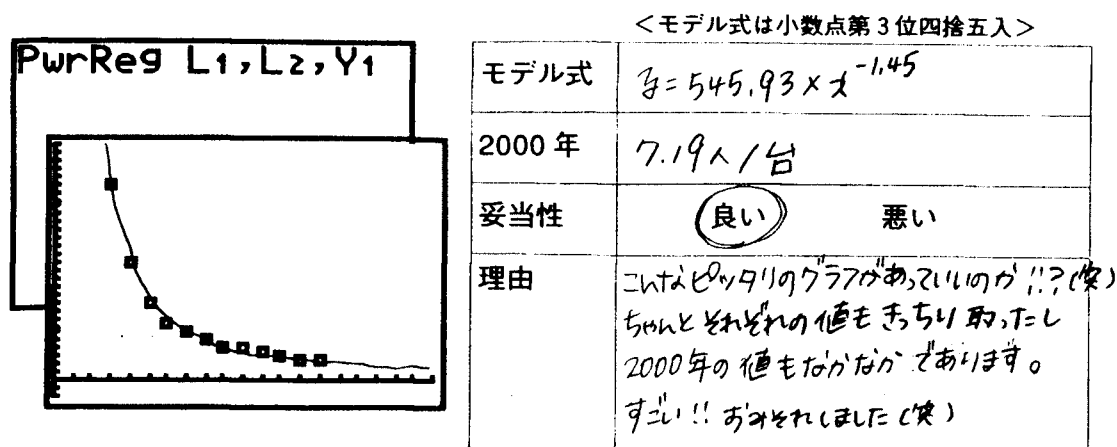 <モデル式は小数点第3位四捨五入>
PwrReg L1,L2,Y1
モデル式 y=545.93×x^-1.45
2000年 7.19人/台
妥当性 良い 悪い
理由 こんなピッタリのグラフがあっていいのか!!?(笑)
ちゃんとそれぞれの値もきっちり取ったし
2000年の値もなかなかであります。
すごい!! おみそれしました(笑)